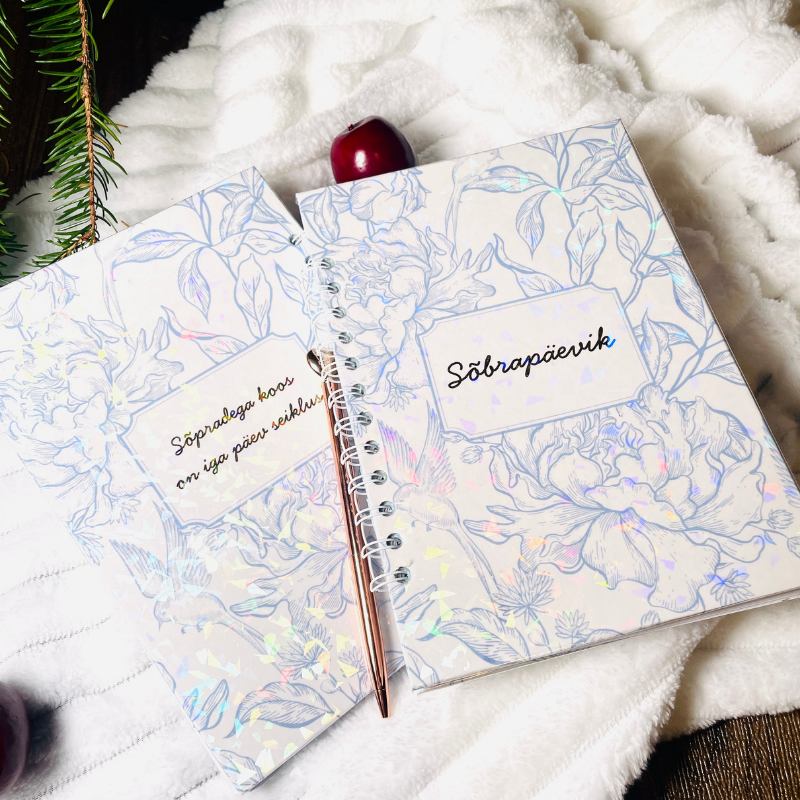 Sõpradega koos
on iga päev seiklus
Sõbrapäevik